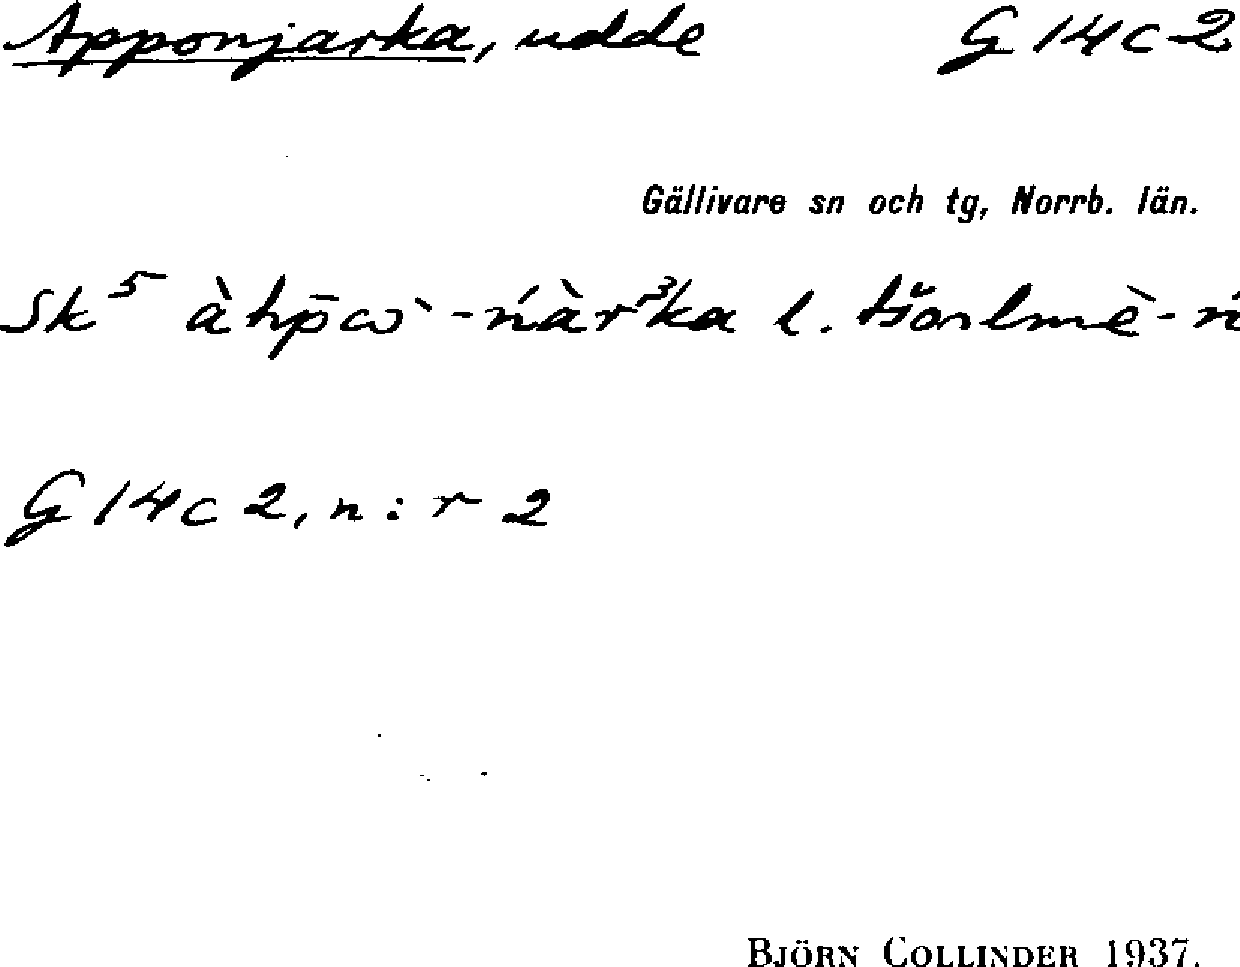 Apponjarka, udde G 14 c 2
Gällivare sn och tg, Norrb. län.
Sk⁵ àhp̄ὼ -ńàr³ka l. tšoɒlmè- ń
G 14 c 2, n:r 2
BJÖRN COLLINDER 1937.